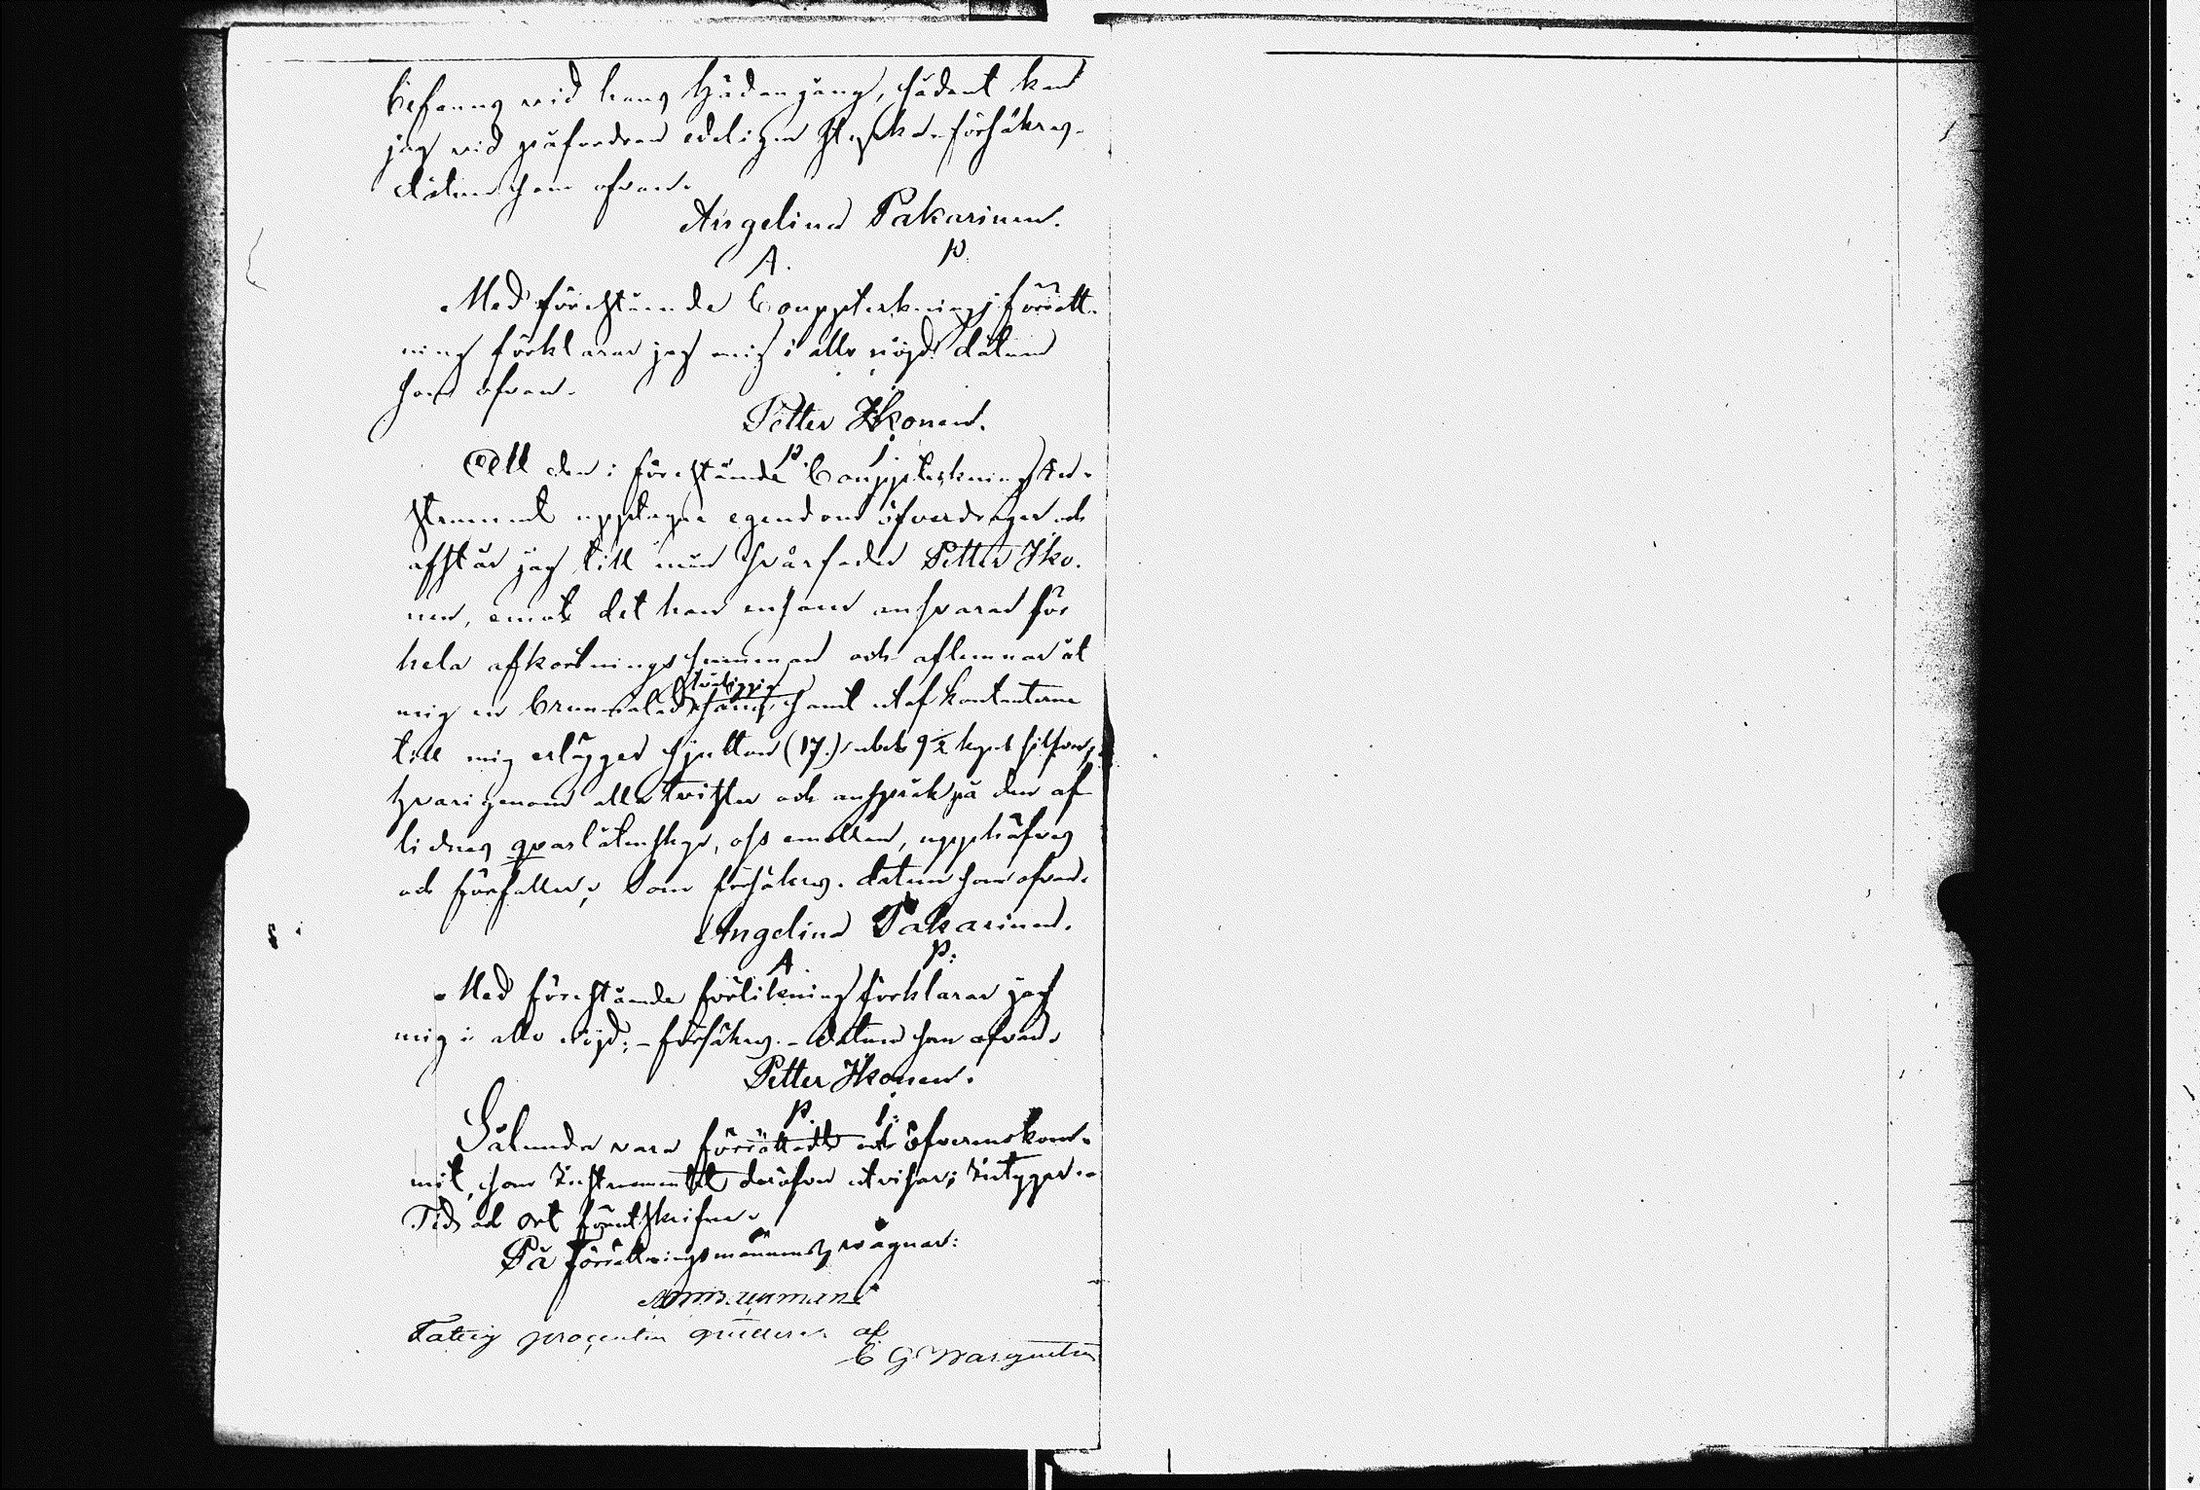 befanns vid hans hädangång, sådant kan
jag vid påfordran edeligen styrka. försäkras.
datum som ofvan.
Angelina Pakarinen.
A. P.
Med förestående Bouppteckningsförrätt-
ning förklarar jag mig i allo nöjd: datum
som ofvan.
Petter Ikonen.
P. I.
All den i förestående Bouppteckningsin-
strument upptagne egendom öfverdrager och
afstår jag till min Svärfader Petter Iko-
nen, emot det han ensam ansvarar för
hela afkortningssumman och aflemnar åt
mig en samt utaf kontanterne
till mig erlägger sjutton (17.) rubel 9½ kopek silfver,
hvarigenom alla tvister och anspråk på den af-
lidnes qvarlåtenskap, oss emellan, upphäfves
och förfaller; Som försäkras. datum som ofvan.
Angelina Pakarinen.
A P:
Med förestående förlikning förklarar jag
mig i allo nöjd; - försäkras. - Datum som ofvan.
Petter Ikonen.
P. I:
Sålunda vara förrättadt och öfverenskom-
mit, som Instrumentet deröfver utvisar; Intygar..
Tid och ort förutskrifne.
På Förrättningsmännens vägnar:
Fattig procenten qvitteras af
C G